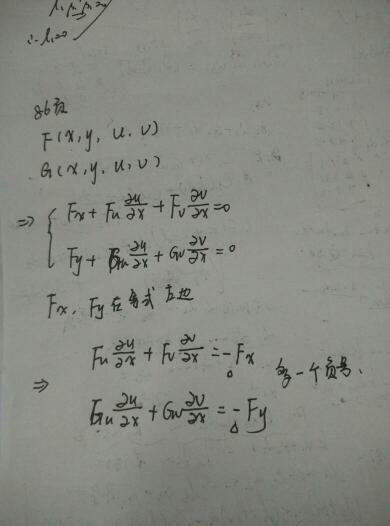 86页
F(x, y, u, v)
G(x, y, u, v)
⇒ { Fx + Fu ∂u/∂x + Fv ∂v/∂x = 0
Fy + Gu ∂u/∂x + Gv ∂v/∂x = 0
Fx, Fy 在等式左边
Fu ∂u/∂x + Fv ∂v/∂x = -Fx
⇒ 多一个负号.
Gu ∂u/∂x + Gv ∂v/∂x = -Fy